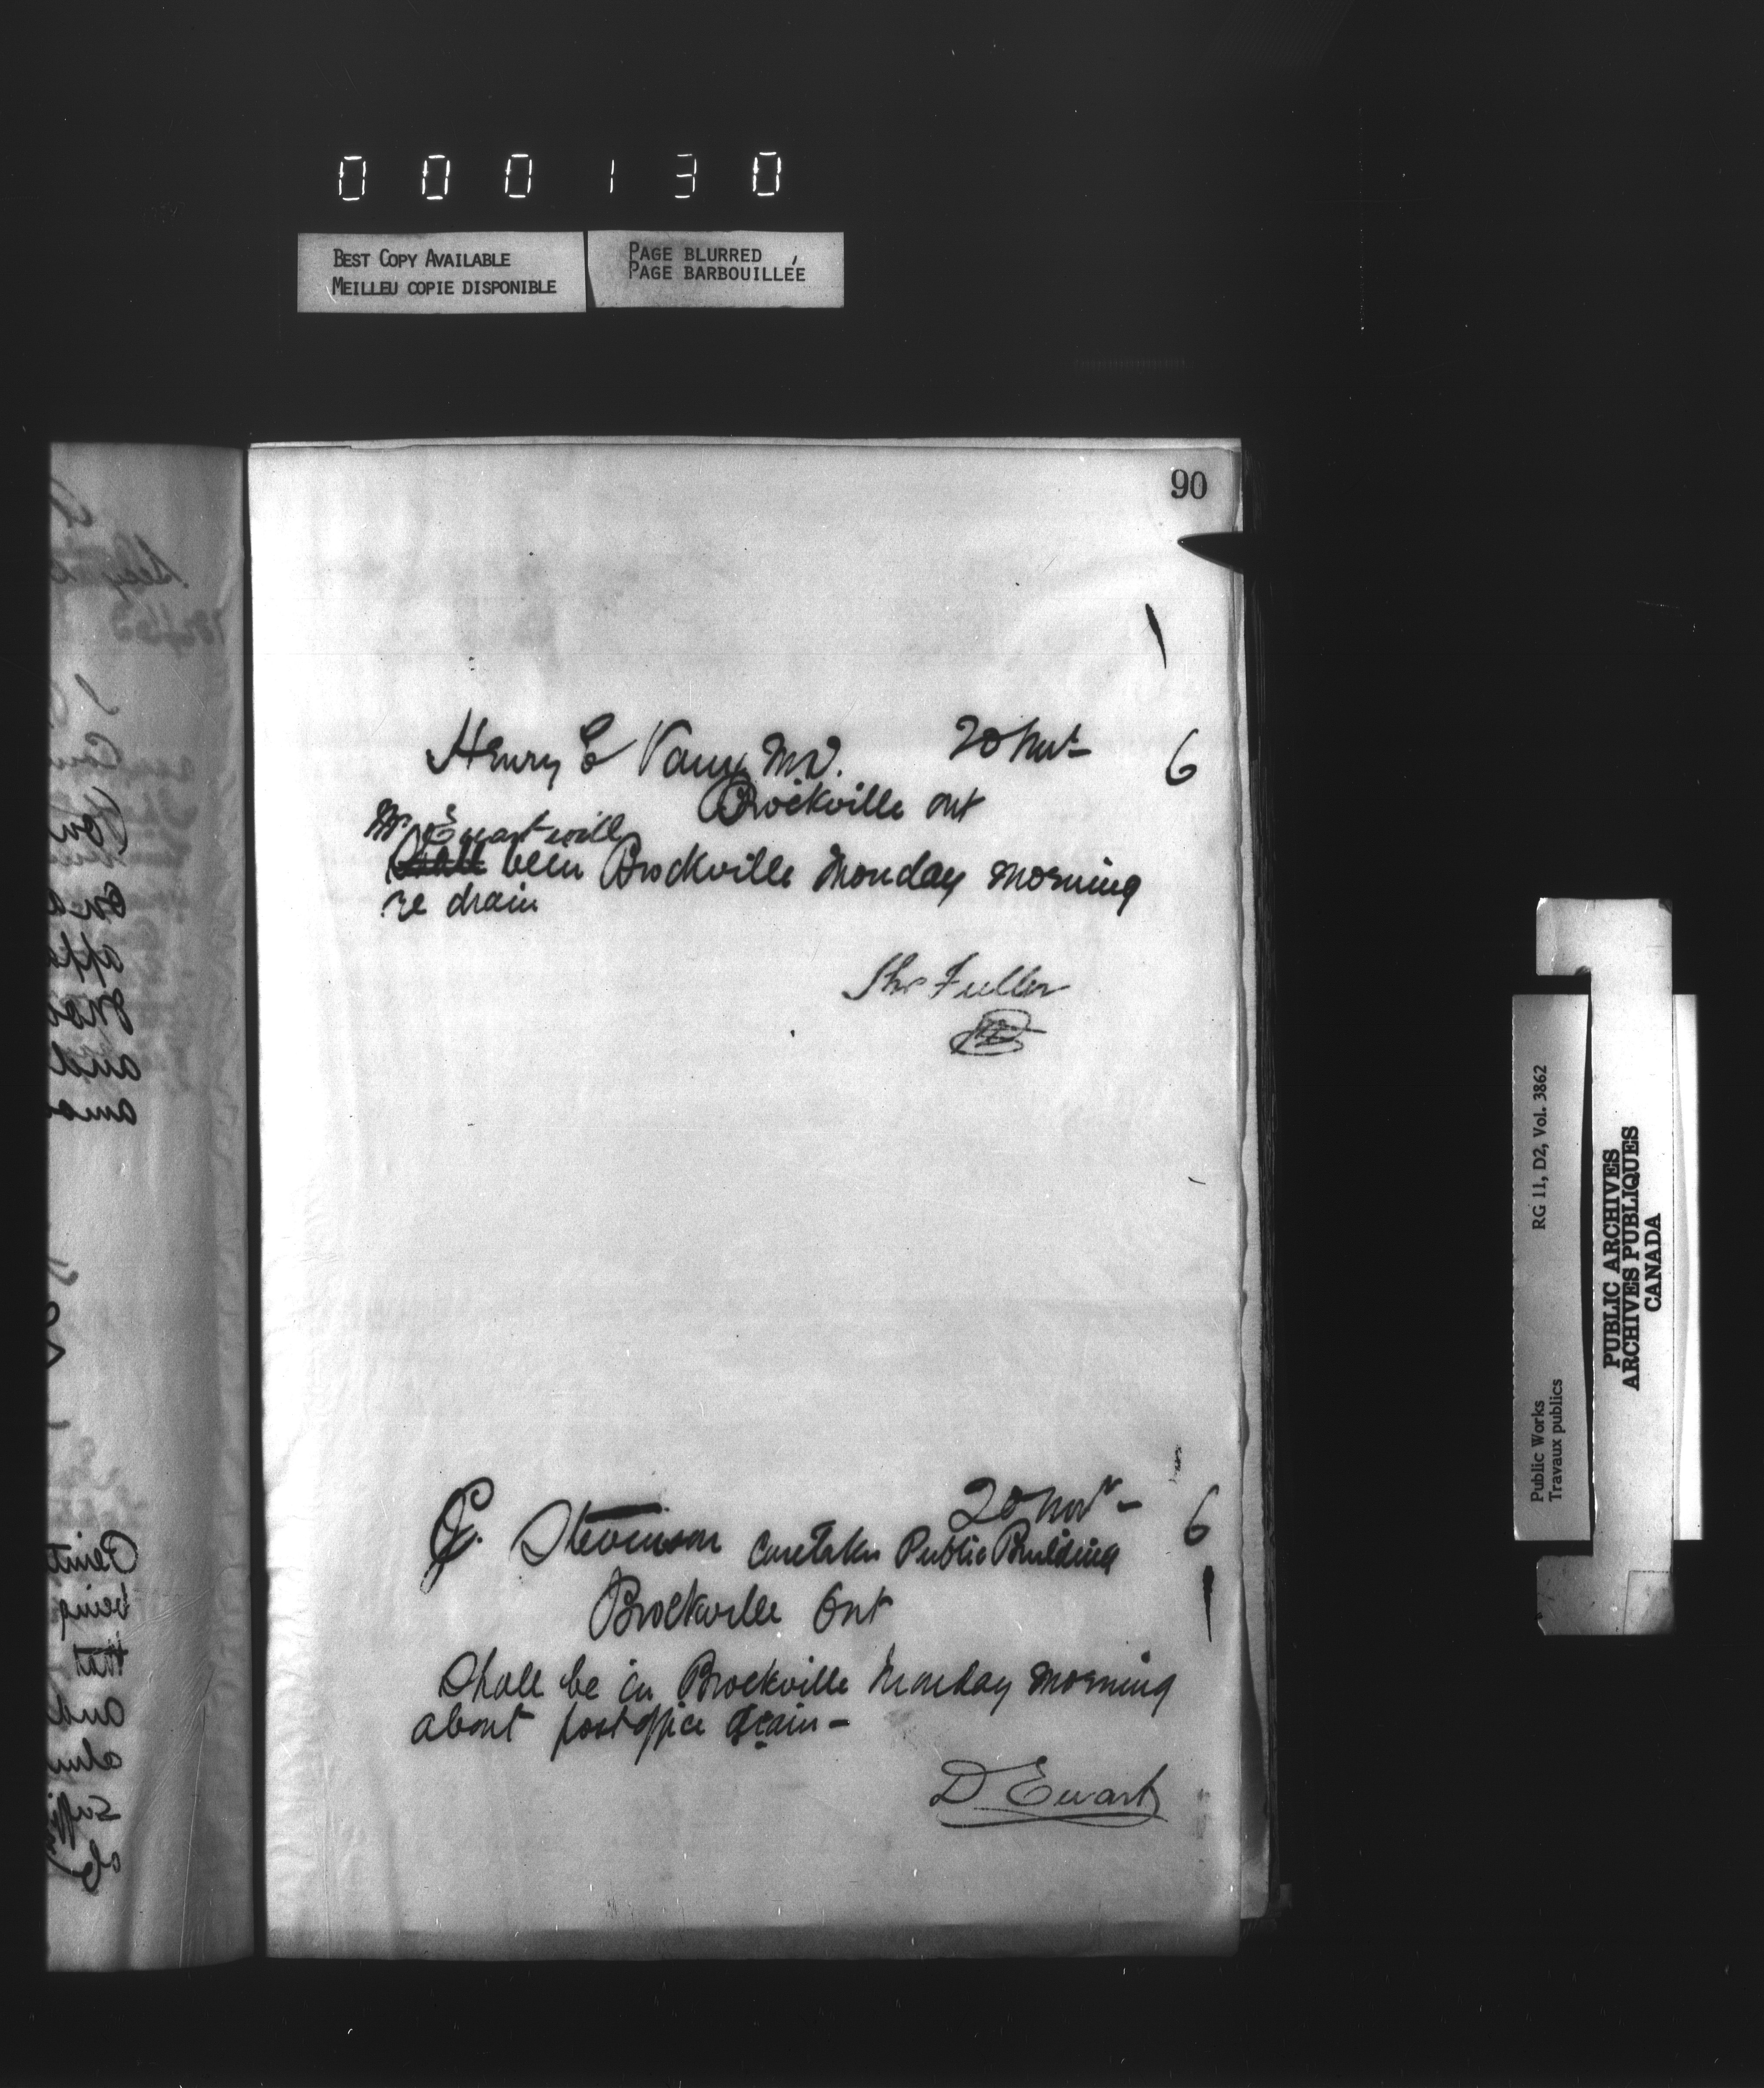 000130
BEST COPY AVAILABLE
MEILLEU COPIE DISPONIBLE
PAGE BLURRED
PAGE BARBOUILLÉE
90
20 Nov
6
Henry C Vaux MD.
Brockville Ont
Mr Ewart will
Shall be in Brockville Monday morning
re drain
Thos Fuller
20 Nov -
6
Stevenson Caretaker Public Building
Brockville Ont
Shall be in Brockville Monday morning
about post office drain -
D Ewart
Public Works
Travaux publics
RG 11, D2, Vol. 3862
PUBLIC ARCHIVES
ARCHIVES PUBLIQUES
CANADA